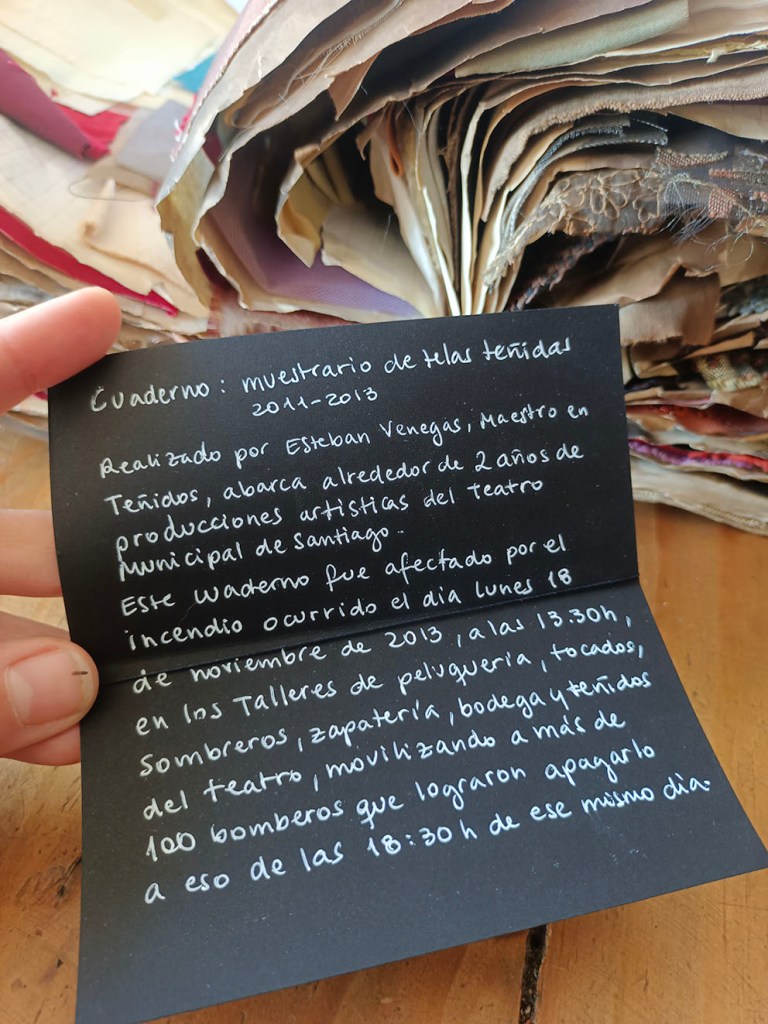 Cuaderno: muestrario de telas teñidas
2011-2013
Realizado por Esteban Venegas, Maestro en
Teñidos, abarca alrededor de 2 años de
producciones artísticas del Teatro
Municipal de Santiago.
Este cuaderno fue afectado por el
incendio ocurrido el día lunes 18
de noviembre de 2013, a las 13.30h,
en los Talleres de peluquería, tocados,
sombreros, zapatería, bodega y teñidos
del teatro, movilizando a más de
100 bomberos que lograron apagarlo
a eso de las 18:30h de ese mismo día.